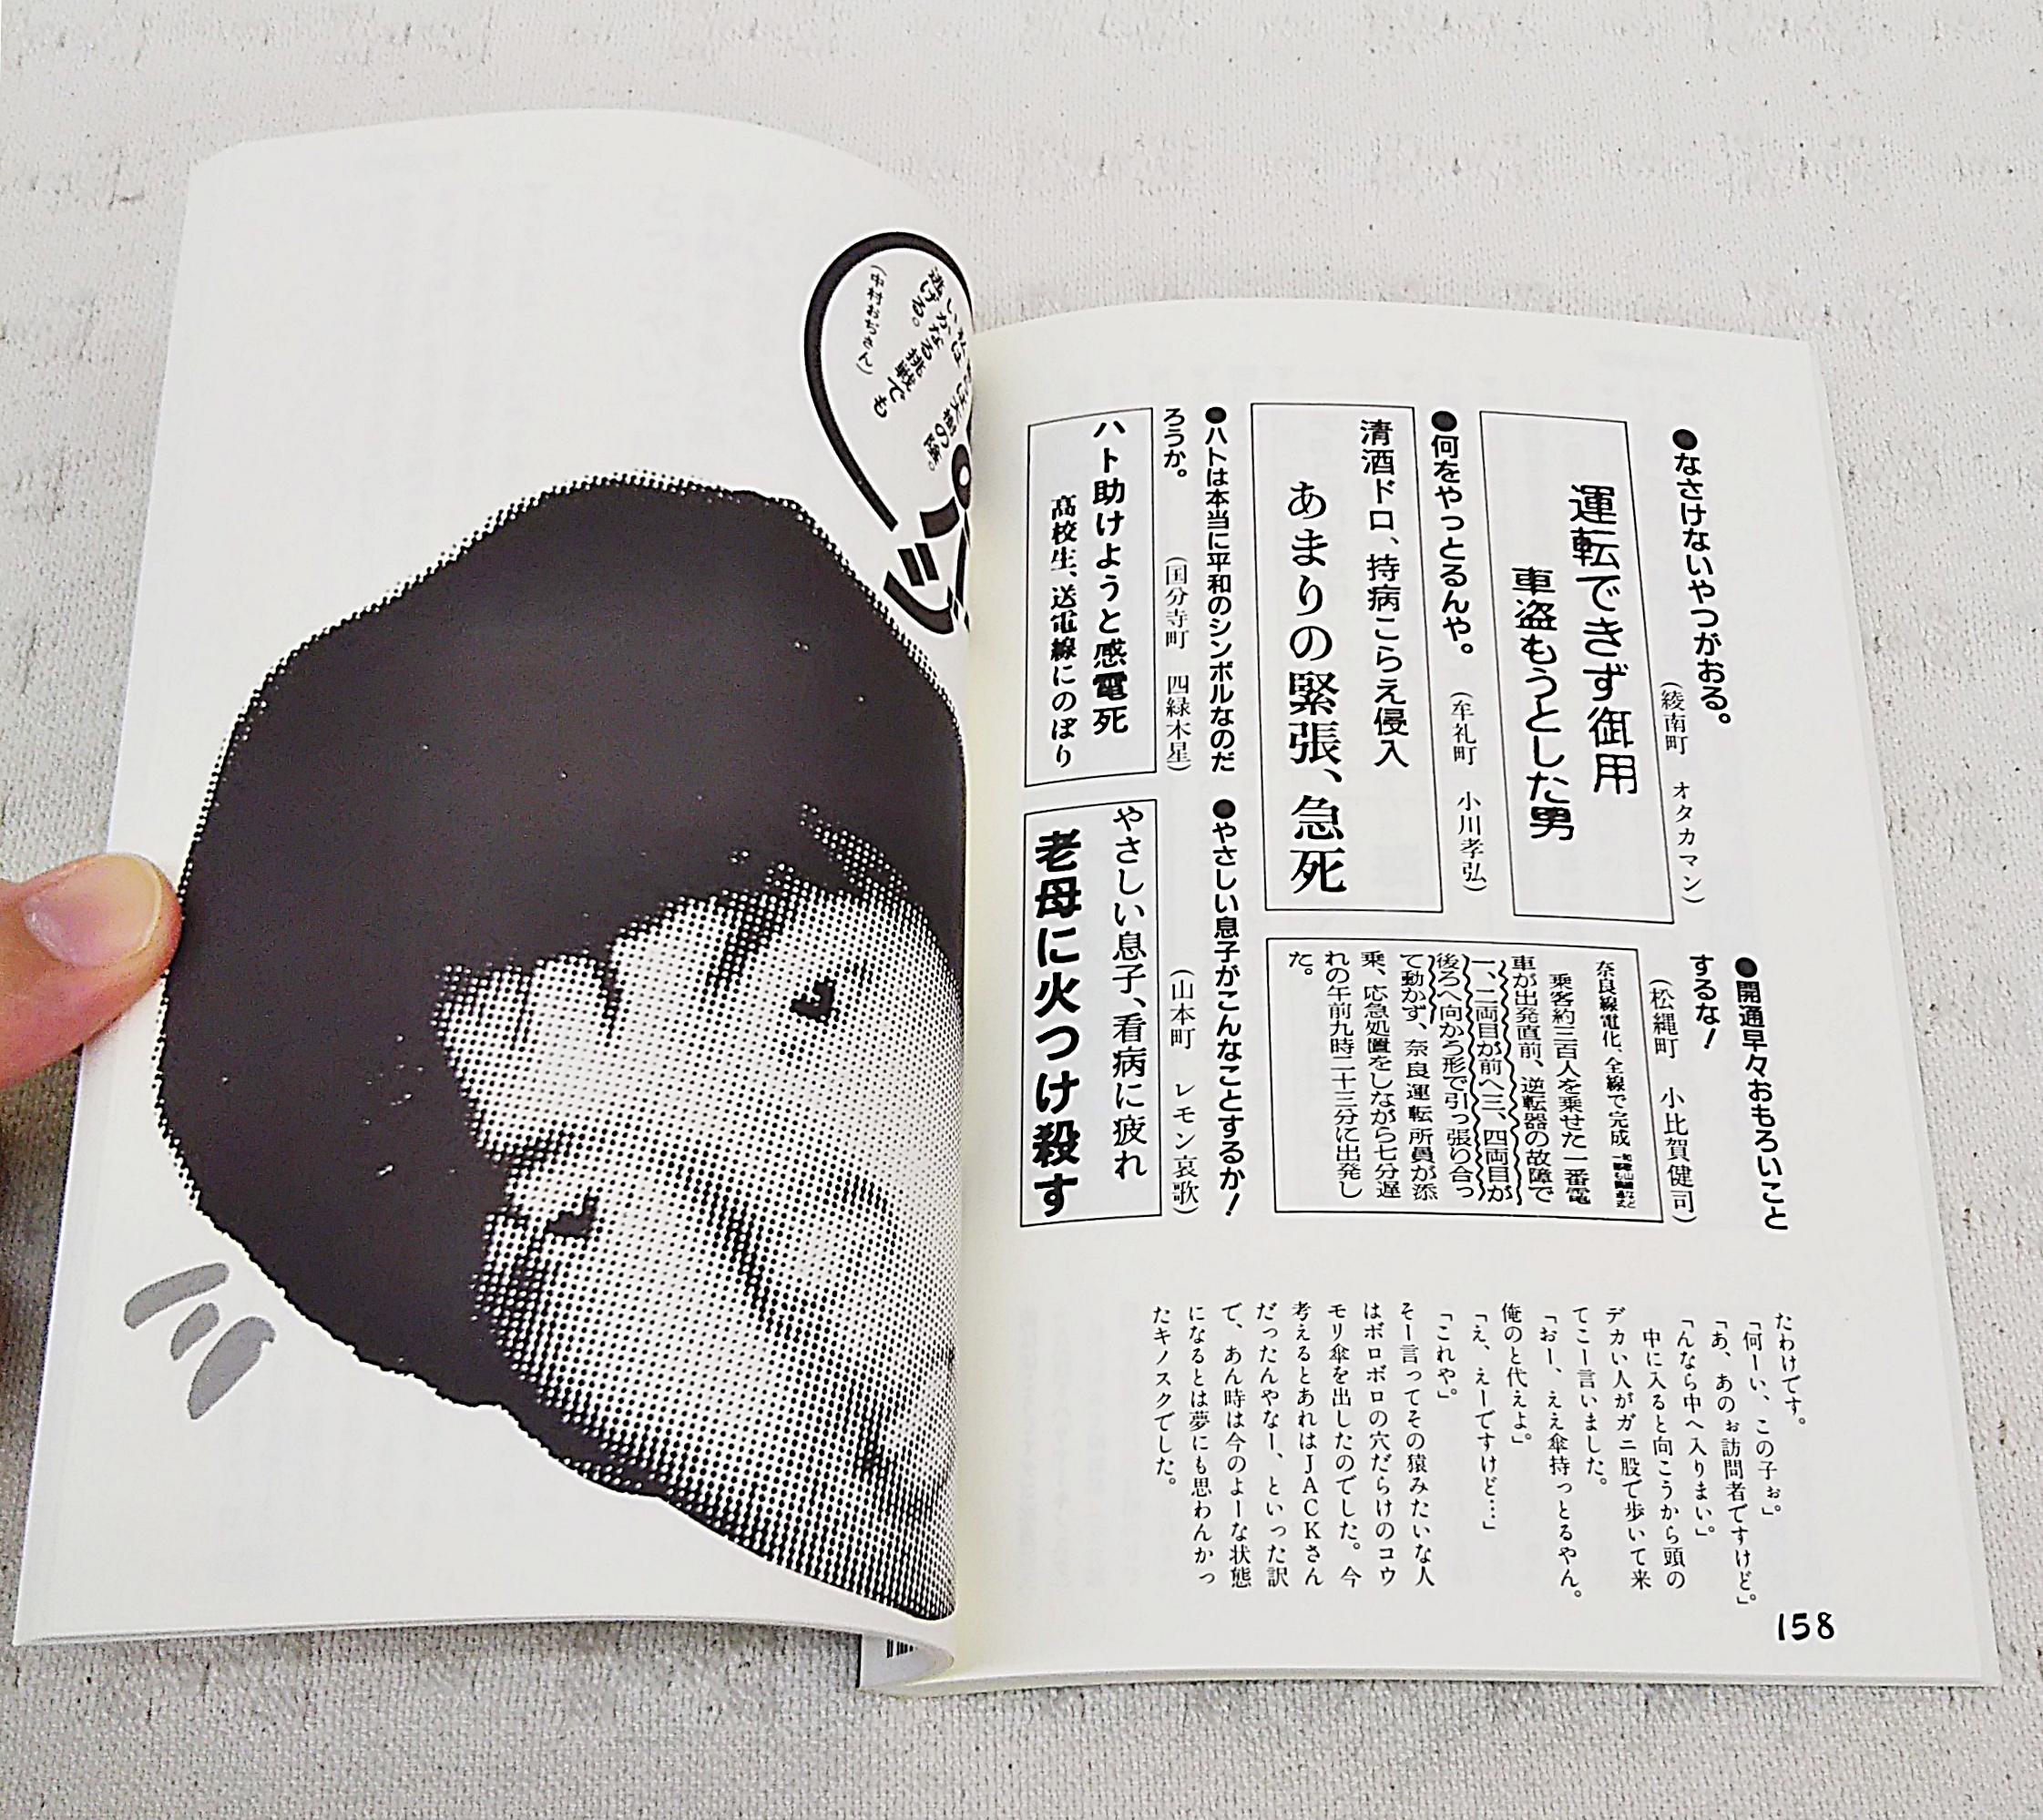 ●なさけないやつがおる。
(綾南町 オタカマン)
運転できず御用
車盗もうとした男
●何をやっとるんや。
(牟礼町 小川孝弘)
清酒ドロ、持病こらえ侵入
あまりの緊張、急死
●ハトは本当に平和のシンボルなのだ
ろうか。
(国分寺町 四緑木星)
ハト助けようと感電死
高校生、送電線にのぼり
●開通早々おもろいこと
するな!
(松縄町 小比賀健司)
奈良線電化、全線で完成
乗客約三百人を乗せた一番電
車が出発直前、逆転器の故障で
一、二両目が前へ三、四両目が
後ろへ向かう形で引っ張り合っ
て動かず、奈良運転所員が添
乗、応急処置をしながら七分遅
れの午前九時二十三分に出発し
た。
●やさしい息子がこんなことするか!
(山本町 レモン哀歌)
やさしい息子、看病に疲れ
老母に火つけ殺す
たわけです。
「何ーい、この子ぉ。」
「あ、あのぉ訪問者ですけど。」
「んなら中へ入りまい。」
中に入ると向こうから頭の
デカい人がガニ股で歩いて来
てこー言いました。
「おー、ええ傘持っとるやん。
俺のと代えよ。」
「え、えーですけど…。」
「これや。」
そー言ってその猿みたいな人
はボロボロの穴だらけのコウ
モリ傘を出したのでした。今
考えるとあれはJACKさん
だったんやなー、といった訳
で、あん時は今のよーな状態
になるとは夢にも思わんかっ
たキノスクでした。
158
いかなる挑戦でも
逃げる。
(中村おぢさん)